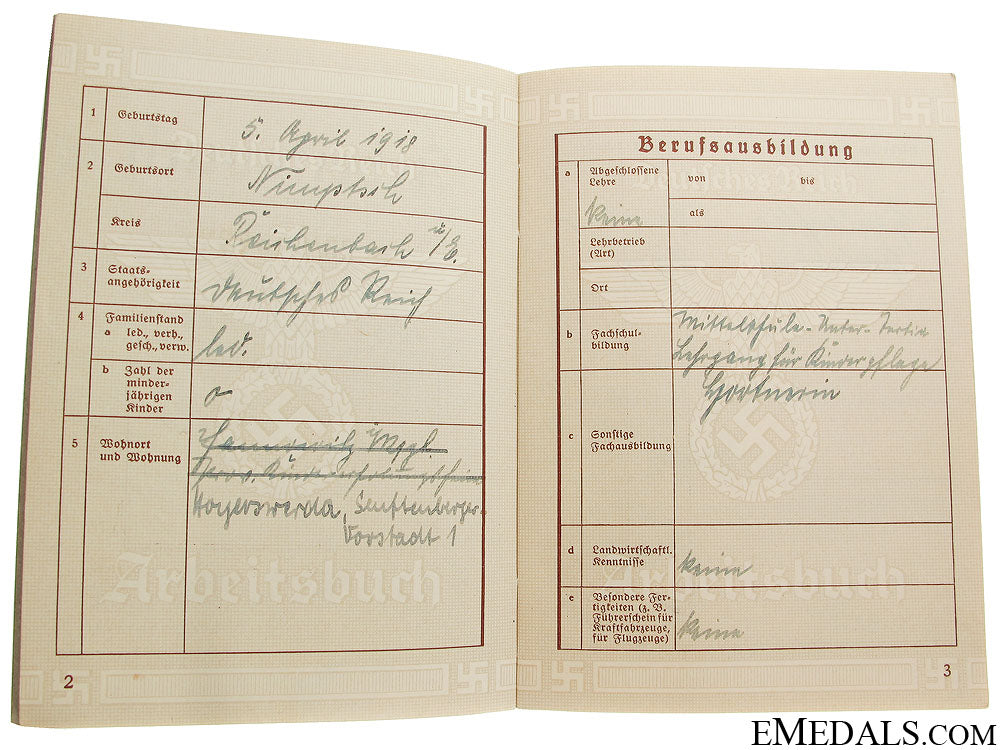 1 Geburtstag 5. April 1918
2 Geburtsort Nimptsch
Kreis Reichenbach i/E.
3 Staats-
angehörigkeit Deutsches Reich
4 Familienstand
a led., verh.,
gesch., verw. led.
b Zahl der
minder-
jährigen
Kinder 0
5 Wohnort
und Wohnung
Kindererholungsheim
Hoyerswerda, Senftenberger-
Vorstadt 1
Arbeitsbuch
2
Berufsausbildung
a Abgeschlossene
Lehre von bis
keine als
Lehrbetrieb
(Art)
Ort
b Fachschul-
bildung Mittelschule - Unter-Tertia
Lehrgang für Kinderpflege
Gärtnerin
c Sonstige
Fachausbildung
d Landwirtschaftl.
Kenntnisse keine
e Besondere Fer-
tigkeiten (z. B.
Führerschein für
Kraftfahrzeuge,
für Flugzeuge) keine
Arbeitsbuch
3
EMEDALS.COM